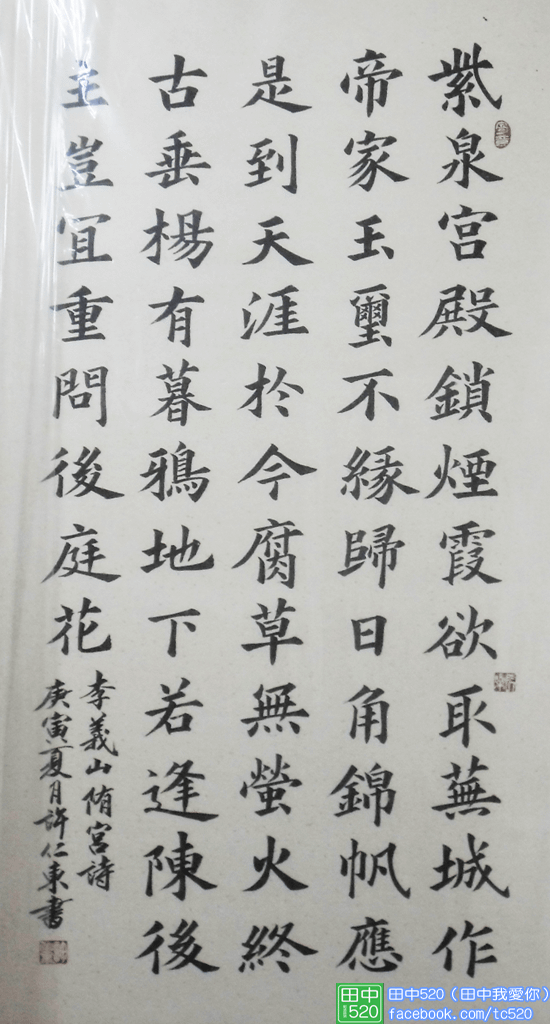 紫泉宮殿鎖煙霞欲取蕪城作
帝家玉璽不緣歸日角錦帆應
是到天涯於今腐草無螢火終
古垂楊有暮鴉地下若逢陳後
主豈宜重問後庭花
李義山隋宮詩
庚寅夏月許仁東書
田中520
田中520（田中我愛你）
facebook.com/tc520